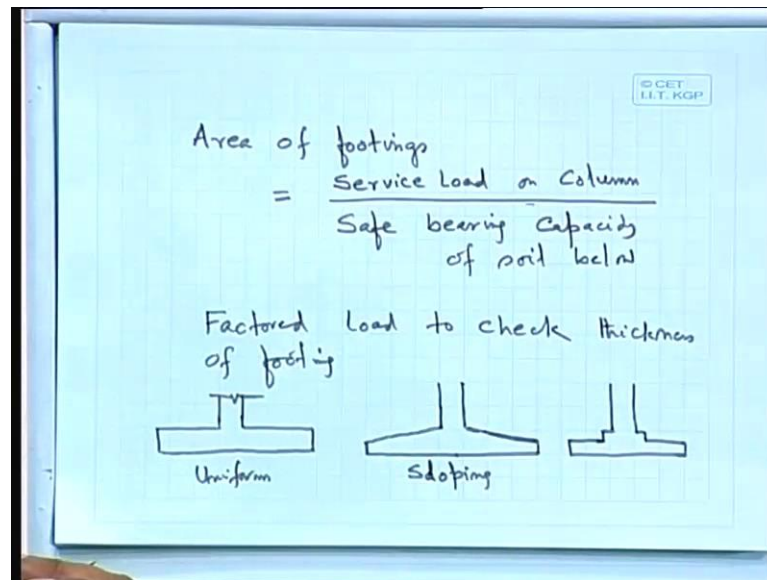 © CET
I.I.T. KGP
Area of footings
= Service Load on Column
Safe bearing capacity
of soil below
Factored Load to check thickness
of footing
Uniform
Sloping